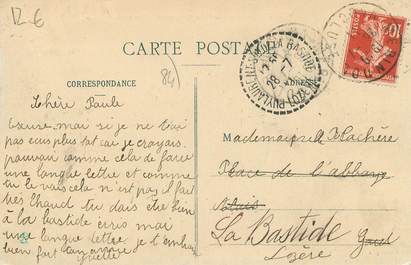 12-6
CARTE POSTALE
84)
CORRESPONDANCE
ADRESSE
28-7
10c
POSTES
Chère Paule
Excuse-moi si je ne t'ai
pas plus tot car je croyais
pouvoir comme cela de faire
une longue lettre et comme
tu le vois cela n'est pas il fait
très chaud tu dois être bien
à la Bastide ecris moi
une longue lettre je t'embrasse
bien fort ton amie
Mademoiselle Flachère
Place de l'abbaye
La Bastide Gard
Lozère